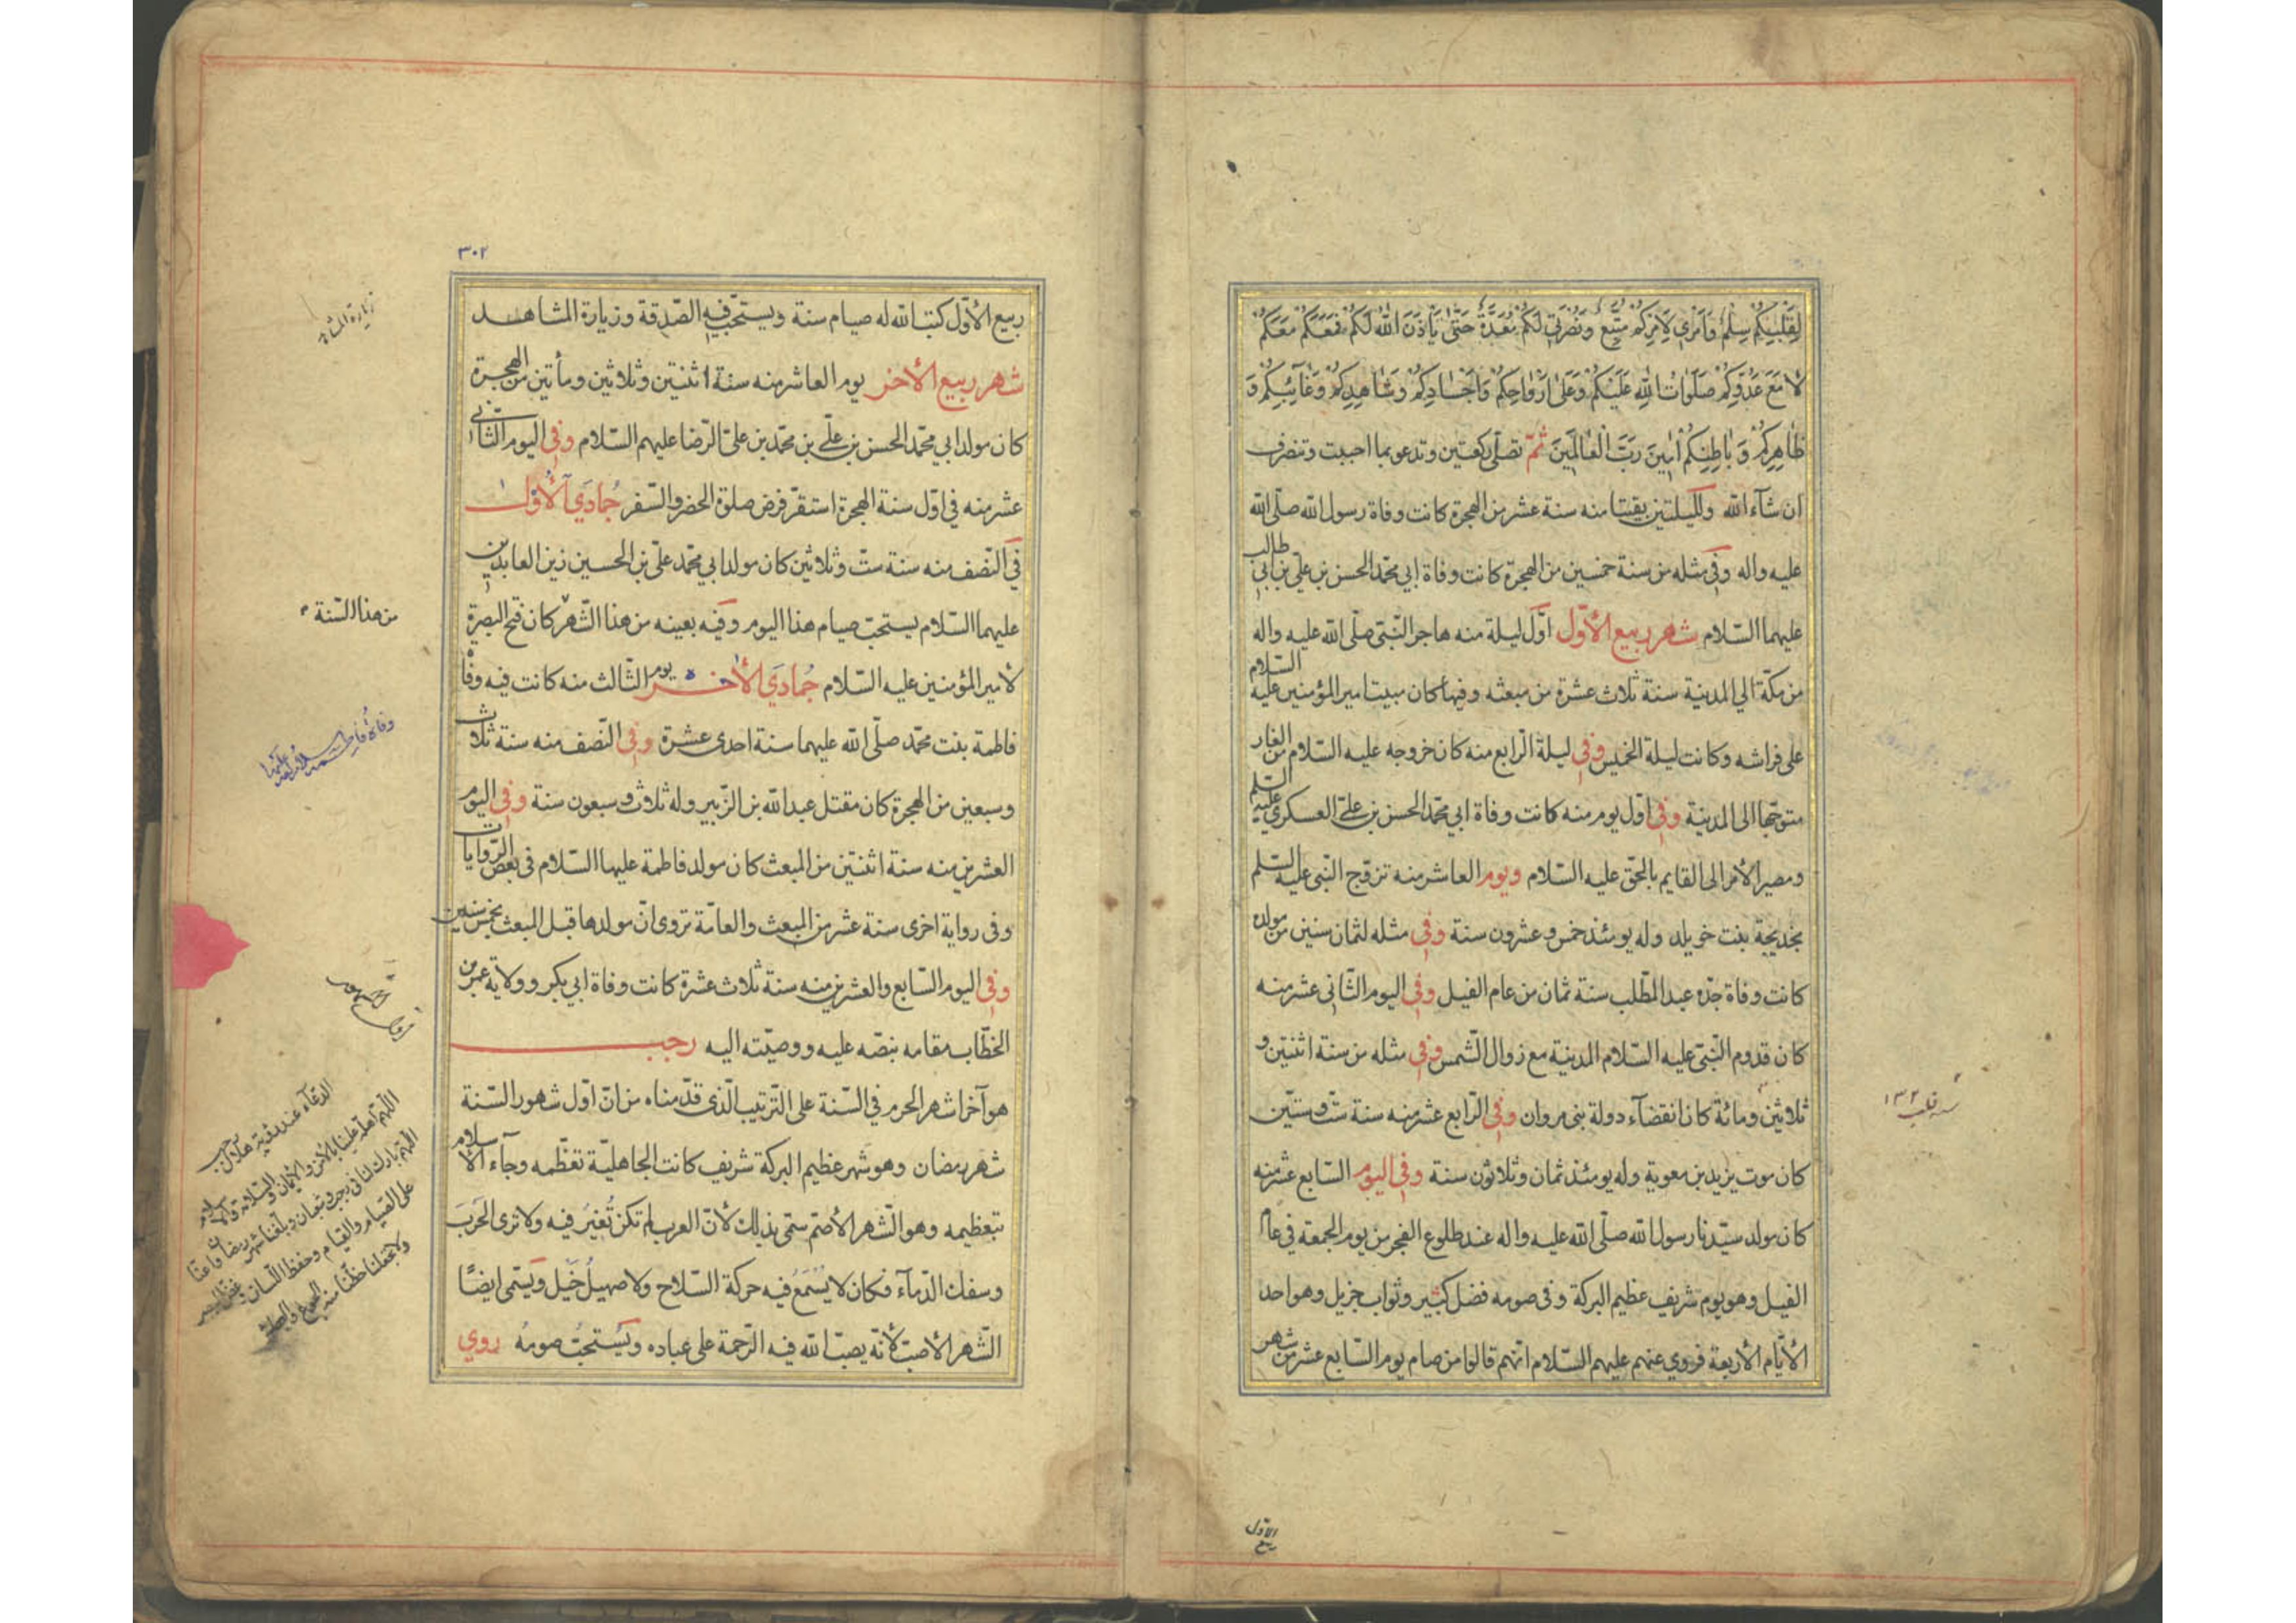 لِقَلْبِكُمْ سِلْمٌ وَاَمْرِي لِاَمْرِكُمْ مُتَّبِعٌ وَنُصْرَتِي لَكُمْ مُعَدَّةٌ حَتَّىٰ يَأْذَنَ اللّٰهُ لَكُمْ فَمَعَكُمْ مَعَكُمْ
لَا مَعَ عَدُوِّكُمْ صَلَوَاتُ اللّٰهِ عَلَيْكُمْ وَعَلىٰ اَرْوَاحِكُمْ وَاَجْسَادِكُمْ وَشَاهِدِكُمْ وَغَآئِبِكُمْ وَ
ظَاهِرِكُمْ وَبَاطِنِكُمْ اٰمِينَ رَبَّ الْعَالَمِينَ ثمّ تصلّى ركعتين وتدعو بما احببت وتنصرف
ان شآء الله ولليلتين بقيتا منه سنة عشر من الهجرة كانت وفاة رسول الله صلّى الله
عليه واله وفى مثله من سنة خمسين من الهجرة كانت وفاة ابي محمّد الحسن بن علي بن ابي طالب
عليهما السّلام شهر ربيع الأوّل اوّل ليلة منه هاجر النّبىّ صلّى الله عليه واله
من مكّة الي المدينة سنة ثلاث عشرة من مبعثه وفيها كان مبيت امير المؤمنين عليه السّلام
على فراشه وكانت ليلة الخميس وفي ليلة الرّابع منه كان خروجه عليه السّلام من الغار
متوجّها الى المدينة وفي اوّل يوم منه كانت وفاة ابي محمّد الحسن بن علىّ العسكري عليه السّلم
ومصير الأمر الى القايم بالحقّ عليه السّلام ويوم العاشر منه تزوّج النّبى عليه السّلم
بخديجة بنت خويلد وله يومئذ خمس وعشرون سنة وفي مثله لثمان سنين من مولده
كانت وفاة جدّه عبد المطّلب سنة ثمان من عام الفيل وفي اليوم الثّانى عشر منه
كان قدوم النّبىّ عليه السّلام المدينة مع زوال الشّمس وفي مثله من سنة اثنتين و
ثلاثين ومائة كان انقضآء دولة بنى مروان وفي الرّابع عشر منه سنة ستّ وستّين
كان موت يزيد بن معوية وله يومئذ ثمان وثلاثون سنة وفي اليوم السّابع عشر منه
كان مولد سيّدنا رسول الله صلّى الله عليه واله عند طلوع الفجر من يوم الجمعة في عام
الفيل وهو يوم شريف عظيم البركة وفى صومه فضل كثير وثواب جزيل وهو احد
الأيّام الأربعة فروي عنهم عليهم السّلام انّهم قالوا من صام يوم السّابع عشر من شهر
ربيع
الاوّل
٣٠٢
ربيع الأوّل كتب الله له صيام سنة ويستحبّ فيه الصّدقة وزيارة المشاهد
شهر ربيع الأخر يوم العاشر منه سنة اثنتين وثلاثين ومأتين من الهجرة
كان مولد ابي محمّد الحسن بن علّى بن محمّد بن علىّ الرّضا عليهم السّلام وفي اليوم الثّانى
عشر منه في اوّل سنة الهجرة استقرّ فرض صلوة الحضر والسّفر جُمادَي الأُولى
في النّصف منه سنة ستّ وثلاثين كان مولد ابي محمّد علىّ بن الحسين زين العابدين
عليهما السّلام يستحبّ صيام هذا اليوم وفيه بعينه من هذا الشّهر كان فتح البصرة
من هذا السّنة
لأمير المؤمنين عليه السّلام جُمادَي الأخر يوم الثّالث منه كانت فيه وفاة
فاطمة بنت محمّد صلّى الله عليهما سنة احدى عشرة وفي النّصف منه سنة ثلاث
وسبعين من الهجرة كان مقتل عبد الله بن الزّبير وله ثلاث وسبعون سنة وفي اليوم
العشرين منه سنة اثنتين من المبعث كان مولد فاطمة عليها السّلام فى بعض الرّوايات
وفى رواية اخرى سنة عشر من المبعث والعامّة تروى انّ مولدها قبل المبعث بخمس سنين
وفي اليوم السّابع والعشرين منه سنة ثلاث عشرة كانت وفاة ابي بكر وولاية عمر بن
الخطّاب مقامه بنصّه عليه ووصيّته اليه رجب
هو آخر اشهر الحرم في السّنة على التّرتيب الّذى قدّمناه من انّ اوّل شهور السّنة
شهر رمضان وهو شهر عظيم البركة شريف كانت الجاهليّة تعظّمه وجآء الاسلام
بتعظيمه وهو الشّهر الأصمّ سمّى بذلك لأنّ العرب لم تكن تُغيرُ فيه ولا ترى الحَرْبَ
وسفك الدّمآء فكان لا يُسْمَعُ فيه حركة السّلاح ولا صهيلُ خَيْل ويسَمّى ايضًا
الشّهر الأصبّ لأنّه يصبّ الله فيه الرّحمة على عباده ويُسْتحبُّ صومُه روي
الدّعآء عند رؤية هلال رجب
اللّهمّ اهلّه علينا بالأمن والأيمان والسّلامة والاسلام
اللّهمّ بارك لنا في رجب وشعبان وبلّغنا شهر رمضان واعنّا
على الصّيام والقيام وحفظ اللّسان وغضّ البصر
ولا تجعل حظّنا منه الجوع والعطش